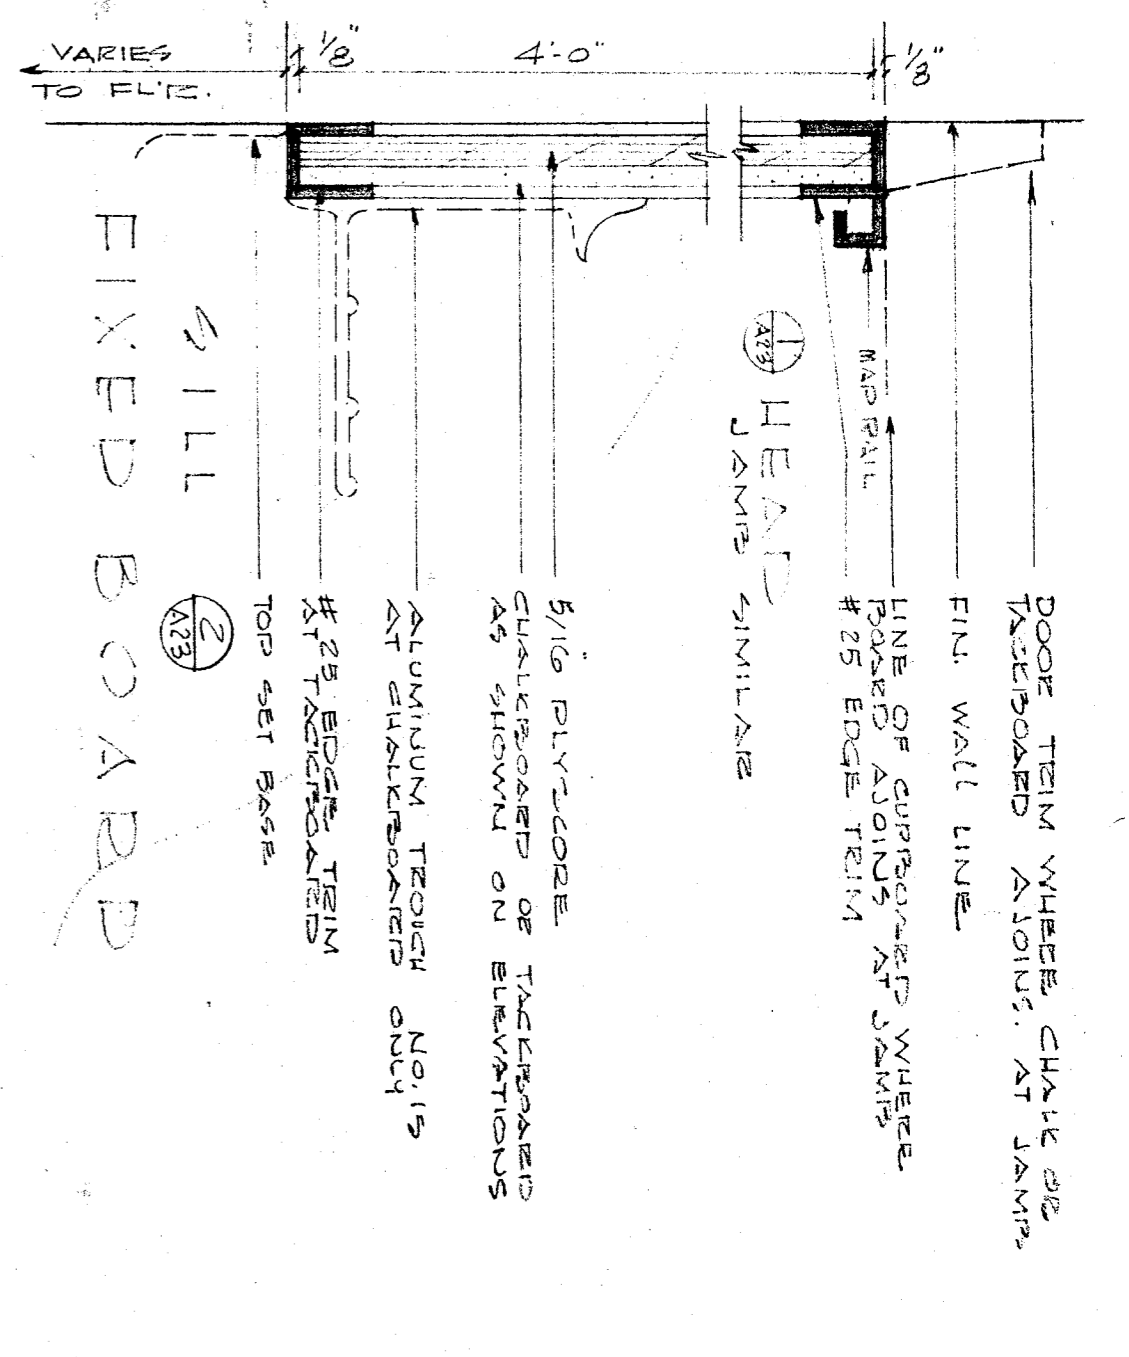 DOOR TRIM WHERE CHALK OR
TACKBOARD AJOINS. AT JAMB
FIN. WALL LINE
LINE OF CUPBOARD WHERE
BOARD AJOINS AT JAMB
# 25 EDGE TRIM
MAP RAIL
1
A23
HEAD
JAMB SIMILAR
5/16" PLYSCORE
CHALKBOARD OR TACKBOARD
AS SHOWN ON ELEVATIONS
ALUMINUM TROUGH NO. 15
AT CHALKBOARD ONLY
# 25 EDGE TRIM
AT TACKBOARD
TOP SET BASE
SILL
2
A23
FIXED BOARD
VARIES
TO FL'R.
1/8"
4'-0"
1/8"